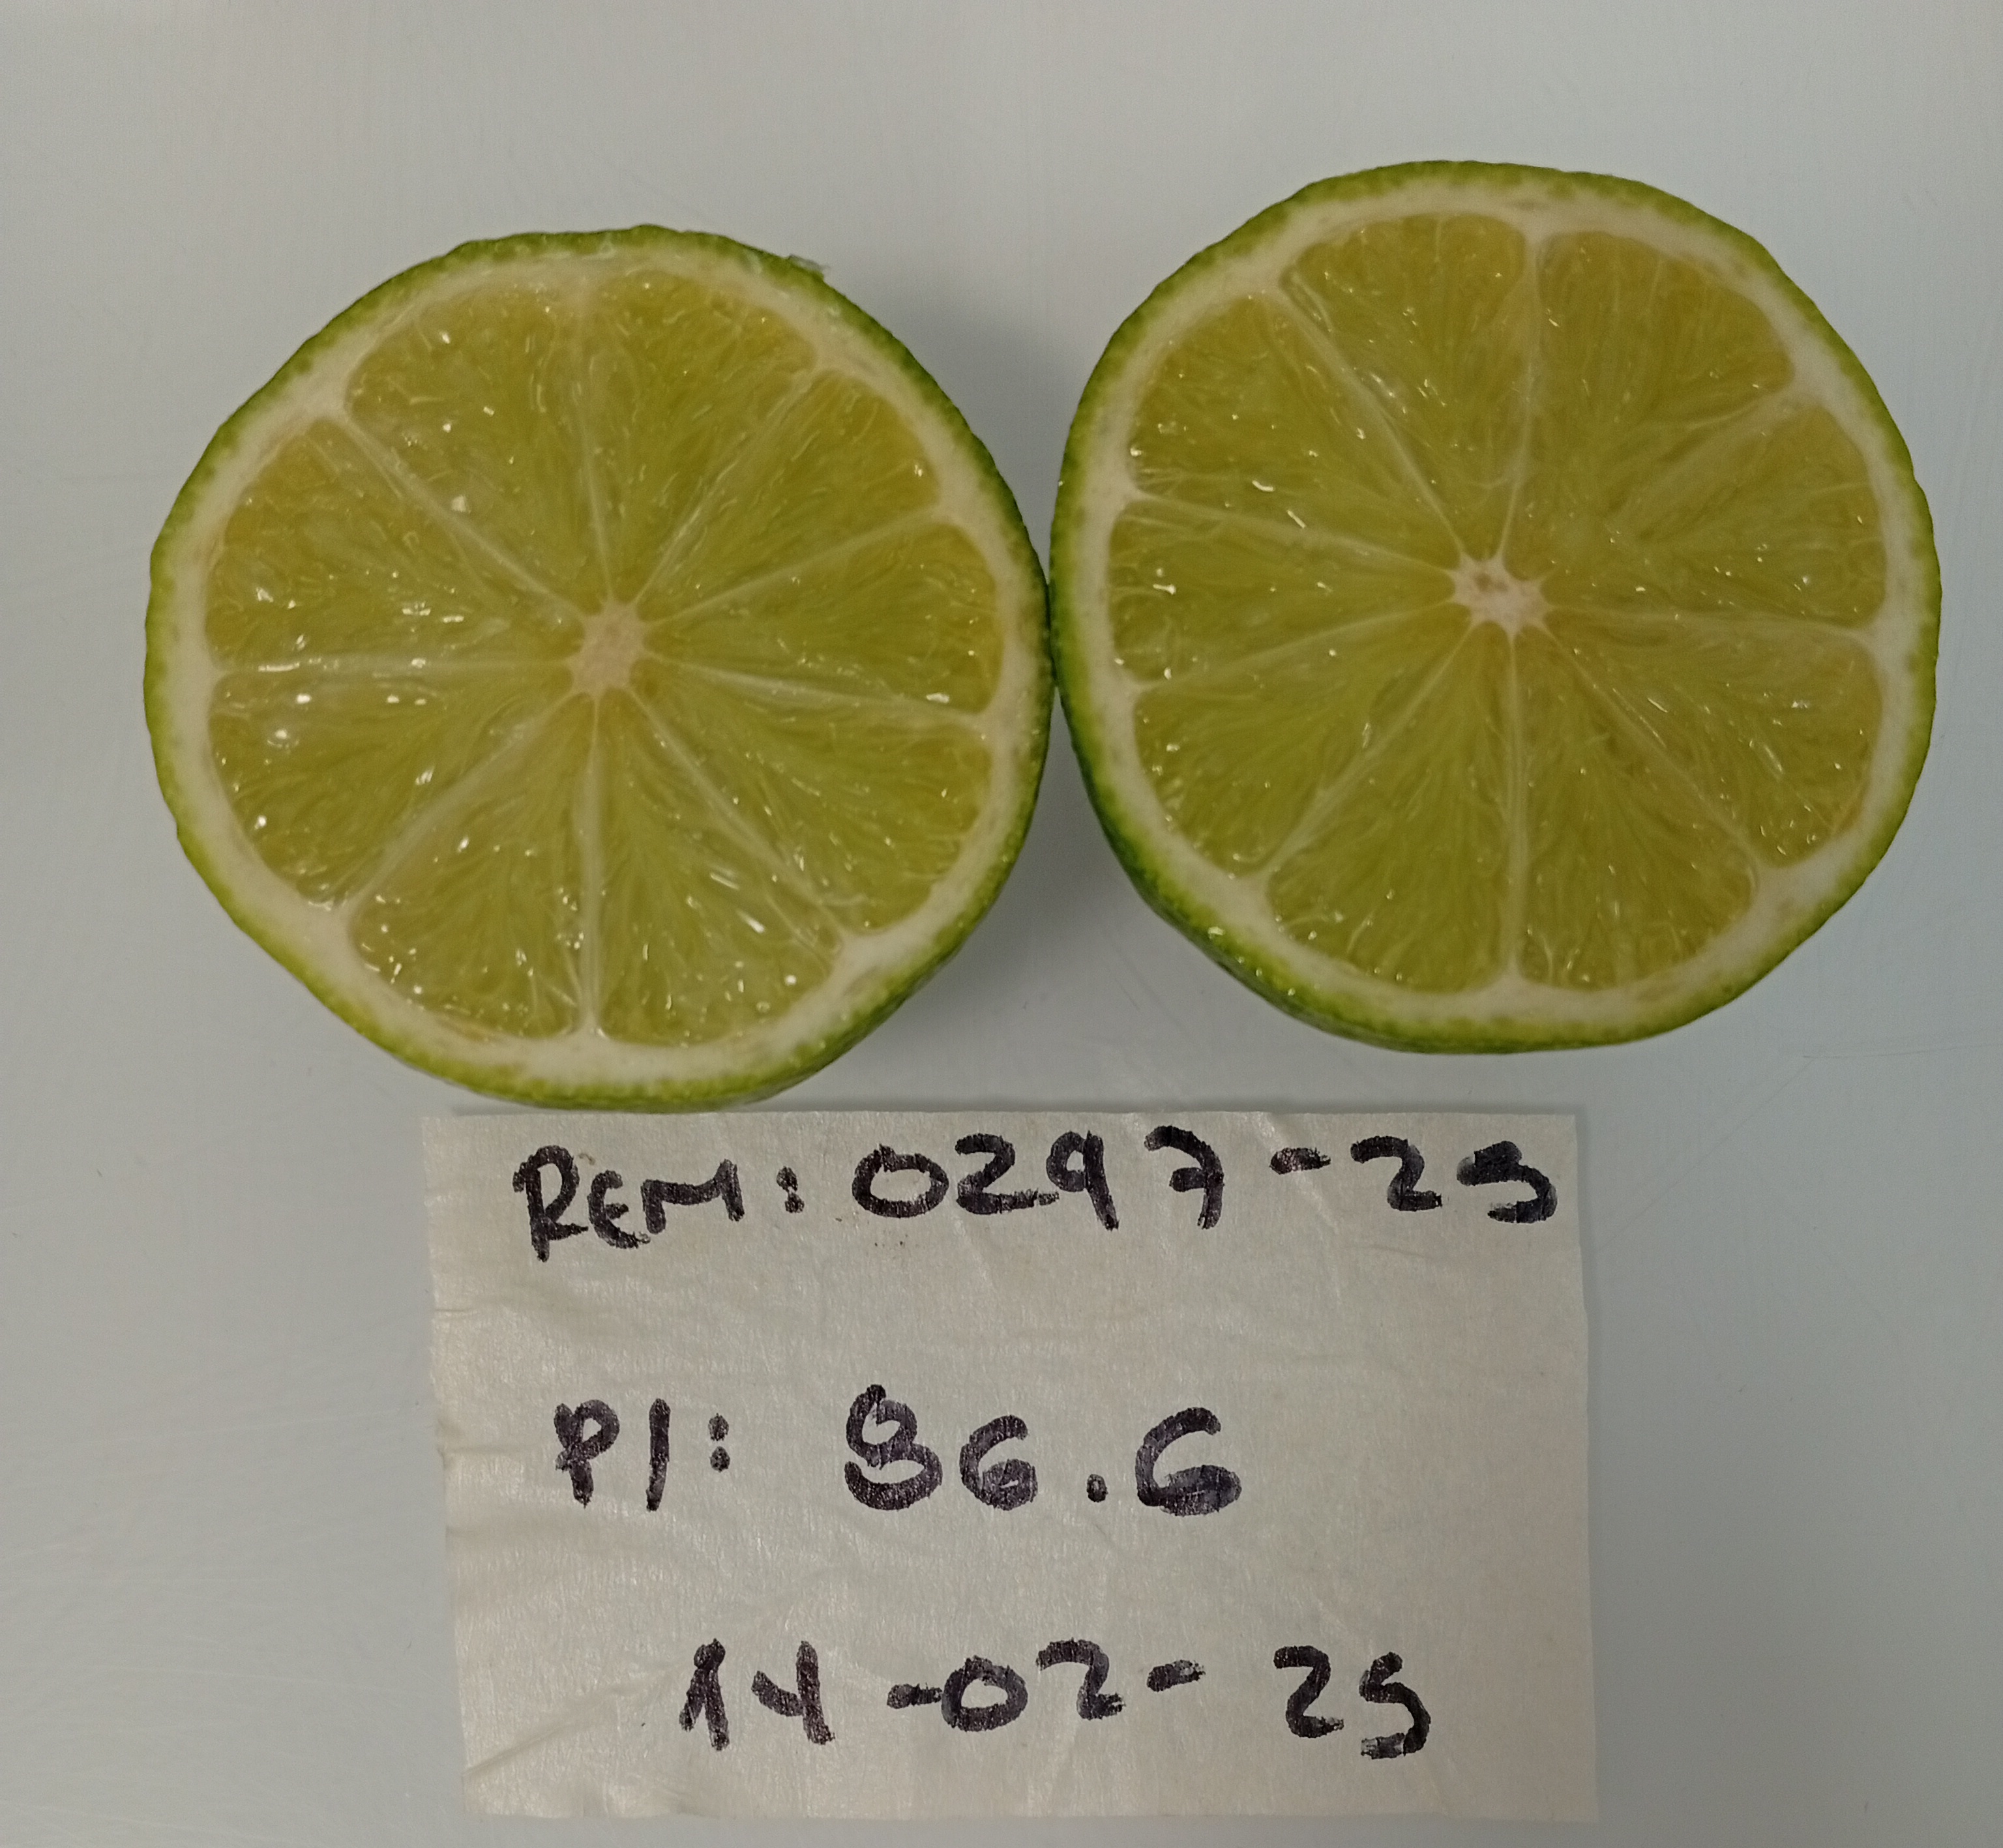 REM: 0297-25
PI: 86.6
14-02-25